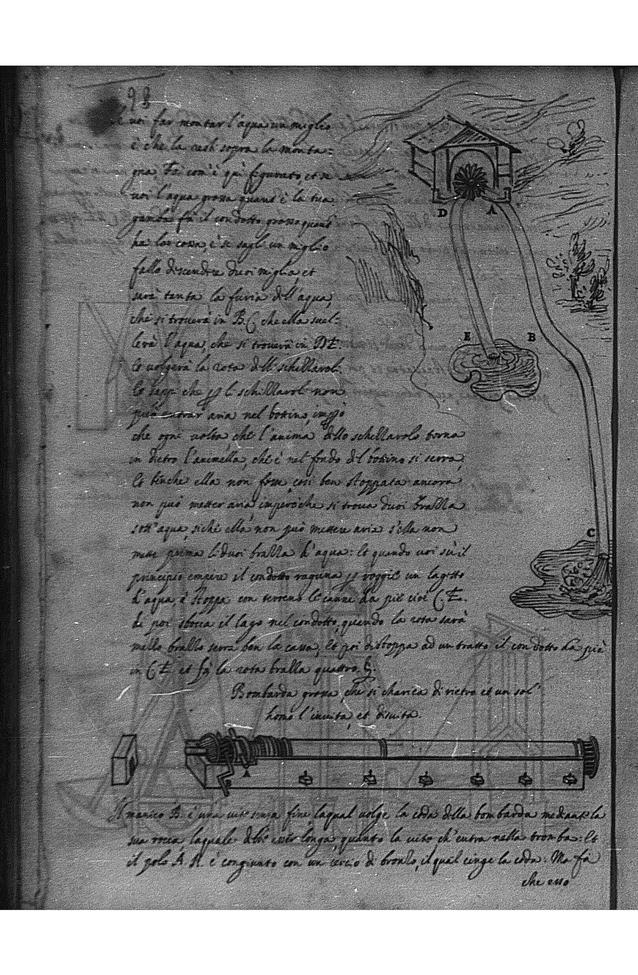 98
voi far montar l'aqua un miglio
è che la casa sopra la monta-
gna Fa com'è qui figurato et se
voi l'aqua grossa quant'è la tua
gamba fa il condotto grosso quant'
ha la coscia, è se sagli un miglio
fallo descendere duoi miglia et
sarà tanta la furia dell'aqua,
che si troverà in B.C che ella suel-
lerà l'aqua, che si troverà in DE.
lo volgerà la rota delli
che li non
può entrar aria nel bottino,
che ogni volta che l'anima dello torna
in dietro l'animella, ch'è nel fondo del bottino si serra,
benche ella non fosse così ben stoppata ancora
non può metter aria imperoche si trova duoi bralla
sott'aqua, siche ella non può mettere aria s'ella non
mette prima li duoi bralla d'aqua: quando voi su'il
principio empire il condotto raguna un lagetto
d'aqua è stoppa con terreno le canne da piè cioè C.E.
di poi sbocca il lago nel condotto, quando la rota sarà
mello brallo serra ben la cassa, et poi distoppa ad un tratto il condotto da piè
in C.E. et fa la rota bralla quattro
Bombarda grossa che si charica di rietro et un sol'
homo l'invita, et disvita.
A
Il manico B. è una vite senza fine laqual volge la coda della bombarda mediante la
sua rocca laquale longa, quanto la vite ch'entra nella tromba: Et
il polo è congiunto con un cerchio di bronzo, il qual cinge la coda. Ma fa
che esso
D A
E B
C